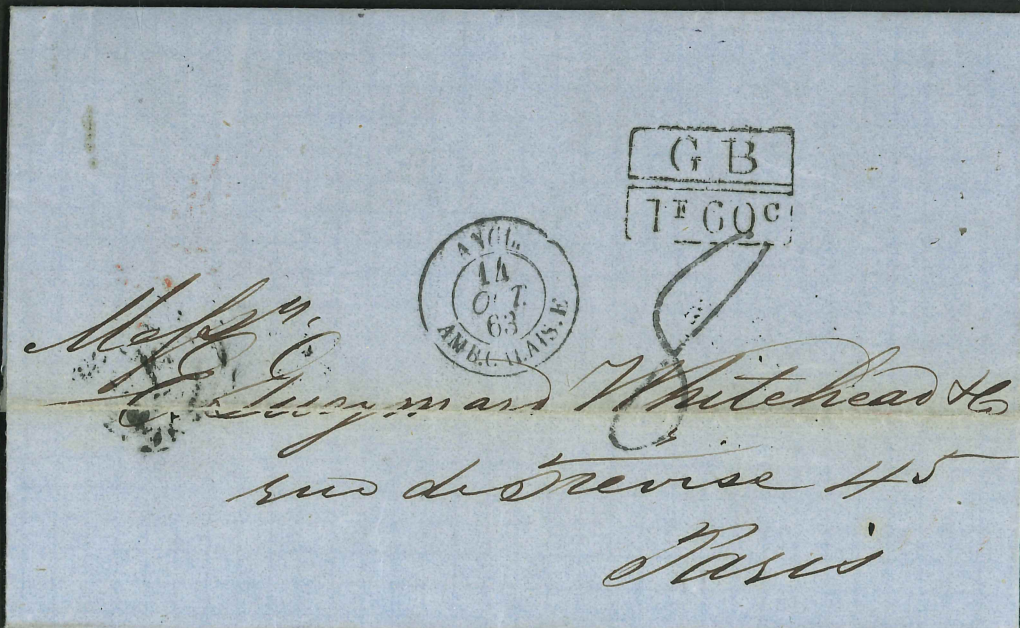 G B
1F 60c
ANGL.
14
OCT.
63
AMB. CALAIS. E
8
Messrs
Guynmard Whitehead & Co
rue de Trevise 45
Paris